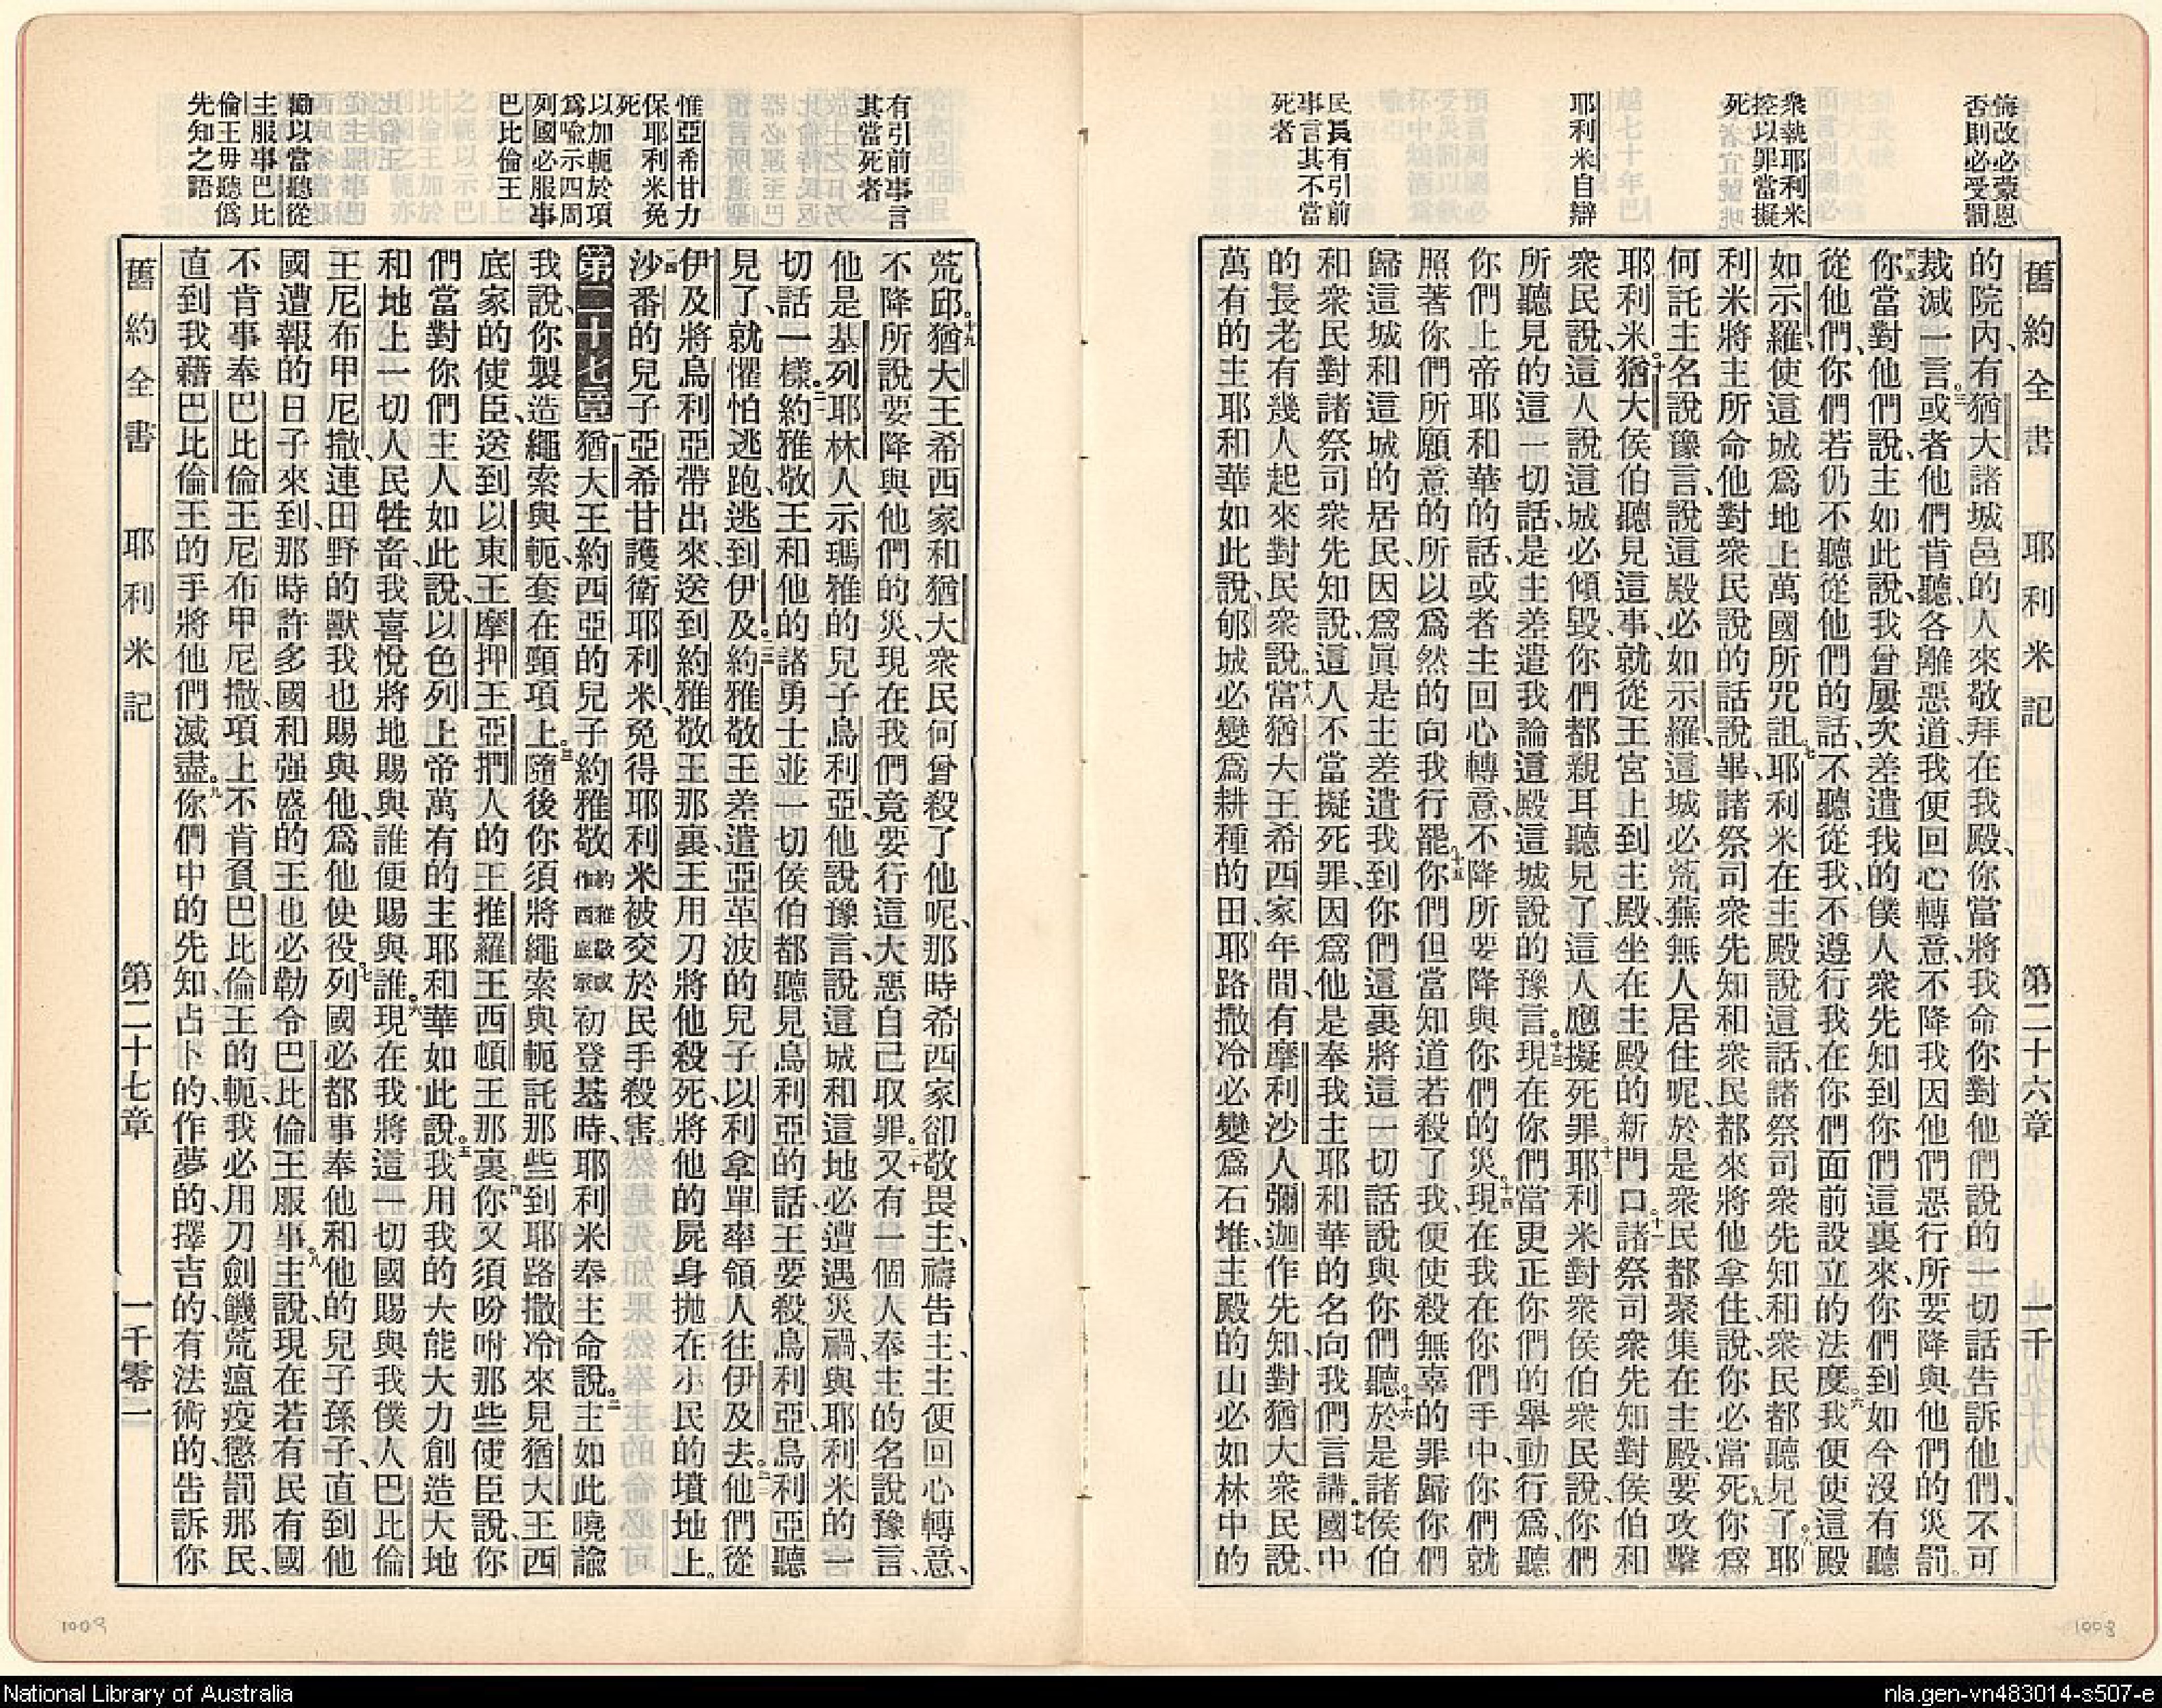 悔改必蒙恩
否則必受罰
衆執耶利米
控以罪當擬
死
耶利米自辯
民員有引前
事言其不當
死者
舊約全書 耶利米記 第二十六章 一千
的院內、有猶大諸城邑的人來敬拜在我殿、你當將我命你對他們說的一切話告訴他們、不可
裁減一言。三或者他們肯聽、各離惡道、我便回心轉意、不降我因他們惡行、所要降與他們的災罰。
四五你當對他們說、主如此說、我曾屢次差遣我的僕人衆先知到你們這裏來、你們到如今沒有聽
從他們、你們若仍不聽從他們的話、不聽從我、不遵行我在你們面前設立的法度。六我便使這殿
如示羅、使這城爲地上萬國所咒詛。七耶利米在主殿說這話、諸祭司衆先知和衆民都聽見了。八耶
利米將主所命他對衆民說的話說畢、諸祭司衆先知和衆民都來將他拿住說、你必當死。九你爲
何託主名說豫言、說這殿必如示羅、這城必荒蕪無人居住呢、於是衆民都聚集在主殿、要攻擊
耶利米。十猶大侯伯聽見這事、就從王宮上到主殿、坐在主殿的新門口。十一諸祭司衆先知對侯伯和
衆民說、這人說這城必傾毀、你們都親耳聽見了、這人應擬死罪。十二耶利米對衆侯伯衆民說、你們
所聽見的這一切話、是主差遣我論這殿這城說的豫言。十三現在你們當更正你們的舉動行爲、聽
你們上帝耶和華的話、或者主回心轉意、不降所要降與你們的災。十四現在我在你們手中、你們就
照著你們所願意的、所以爲然的向我行罷。十五你們但當知道、若殺了我、便使殺無辜的罪歸你們
歸這城和這城的居民、因爲眞是主差遣我到你們這裏將這一切話說與你們聽。十六於是諸侯伯
和衆民對諸祭司衆先知說、這人不當擬死罪、因爲他是奉我主耶和華的名向我們言講。十七國中
的長老有幾人起來對民衆說。十八當猶大王希西家年間、有摩利沙人彌迦作先知、對猶大衆民說、
萬有的主耶和華如此說、郇城必變爲耕種的田、耶路撒冷必變爲石堆、主殿的山必如林中的
有引前事言
其當死者
惟亞希甘力
保耶利米免
死
以加軛於項
爲喩示四周
列國必服事
巴比倫王
勸以當聽從
主服事巴比
倫王毋聽僞
先知之語
荒邱。十九猶大王希西家和猶大衆民何曾殺了他呢、那時希西家卻敬畏主、禱告主、主便回心轉意、
不降所說要降與他們的災、現在我們竟要行這大惡自己取罪。二十又有一個人奉主的名說豫言、
他是基列耶林人示瑪雅的兒子烏利亞、他說豫言、說這城和這地必遭遇災禍、與耶利米的一
切話一樣。二一約雅敬王和他的諸勇士並一切侯伯都聽見烏利亞的話、王要殺烏利亞、烏利亞聽
見了、就懼怕逃跑、逃到伊及。二二約雅敬王差遣亞革波的兒子以利拿單率領人往伊及去。二三他們從
伊及將烏利亞帶出來、送到約雅敬王那裏、王用刀將他殺死、將他的屍身拋在小民的墳地上。
二四沙番的兒子亞希甘護衛耶利米、免得耶利米被交於民手殺害。
第二十七章 一猶大王約西亞的兒子約雅敬約雅敬或作西底家初登基時、耶利米奉主命說。二主如此曉諭
我說、你製造繩索與軛、套在頸項上。三隨後你須將繩索與軛託那些到耶路撒冷來見猶大王西
底家的使臣、送到以東王摩押王亞捫人的王推羅王西頓王那裏。四你又須吩咐那些使臣說、你
們當對你們主人如此說、以色列上帝萬有的主耶和華如此說。五我用我的大能大力創造大地
和地上一切人民牲畜、我喜悅將地賜與誰便賜與誰。六現在我將這一切國賜與我僕人巴比倫
王尼布甲尼撒、連田野的獸我也賜與他、爲他使役。七列國必都事奉他和他的兒子孫子、直到他
國遭報的日子來到、那時許多國和强盛的王也必勒令巴比倫王服事。八主說、現在若有民有國
不肯事奉巴比倫王尼布甲尼撒、項上不肯負巴比倫王的軛、我必用刀劍饑荒瘟疫懲罰那民、
直到我藉巴比倫王的手將他們滅盡。九你們中的先知占卜的、作夢的、擇吉的、有法術的、告訴你
舊約全書 耶利米記 第二十七章 一千零一
1009
1008
National Library of Australia
nla.gen-vn483014-s507-e